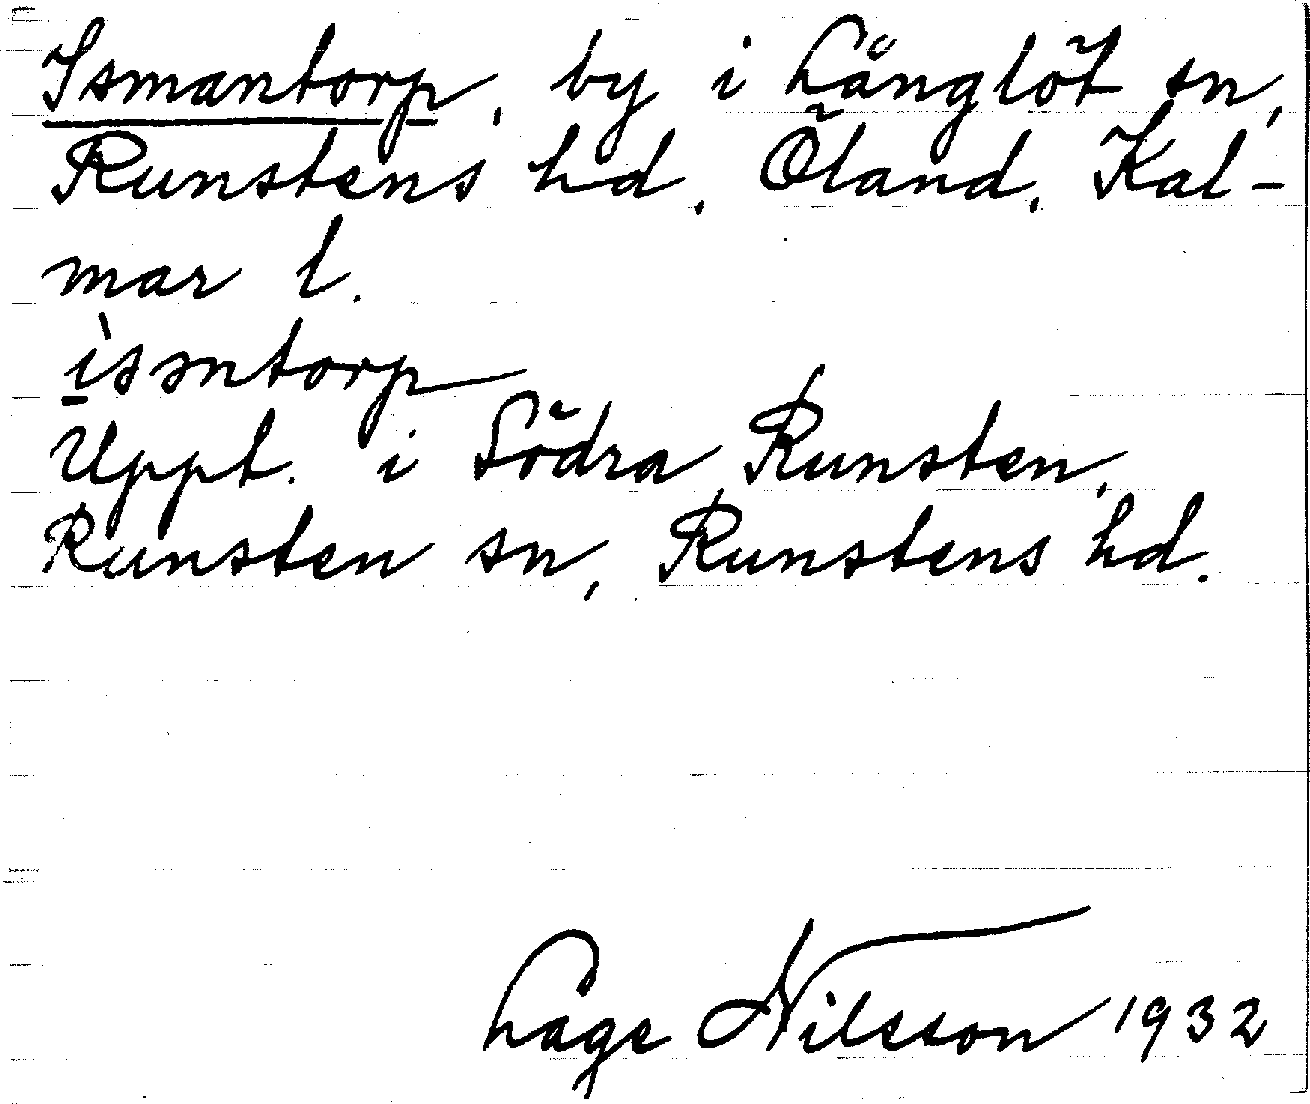 Ismantorp, by i Långlöt sn,
Runstens hd, Öland, Kal-
mar l.
ìsəntorp
Uppt. i Södra Runsten,
Runsten sn, Runstens hd.
Låge Nilsson 1932